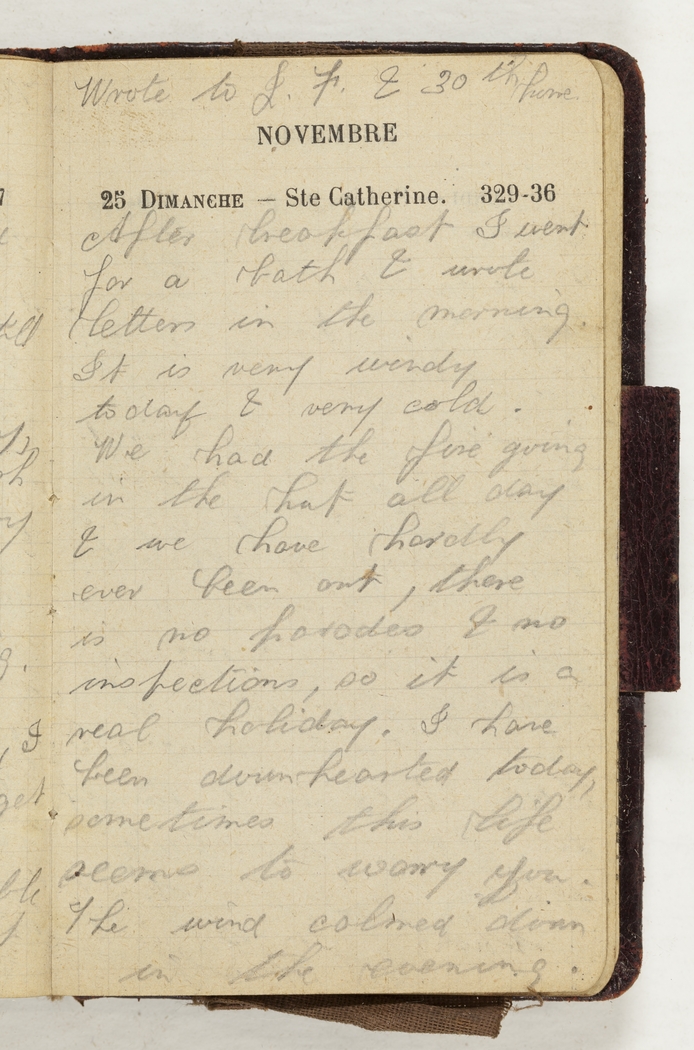 Wrote to J. F. & 30th
NOVEMBRE
25 DIMANCHE – Ste Catherine. 329-36
After breakfast I went
for a bath & wrote
letters in the morning.
It is very windy
today & very cold.
We had the fire going
in the hut all day
& we have hardly
ever been out, there
is no parades & no
inspections, so it is a
real holiday. I have
been downhearted today,
sometimes this life
seems to worry you.
The wind calmed down
in the evening.